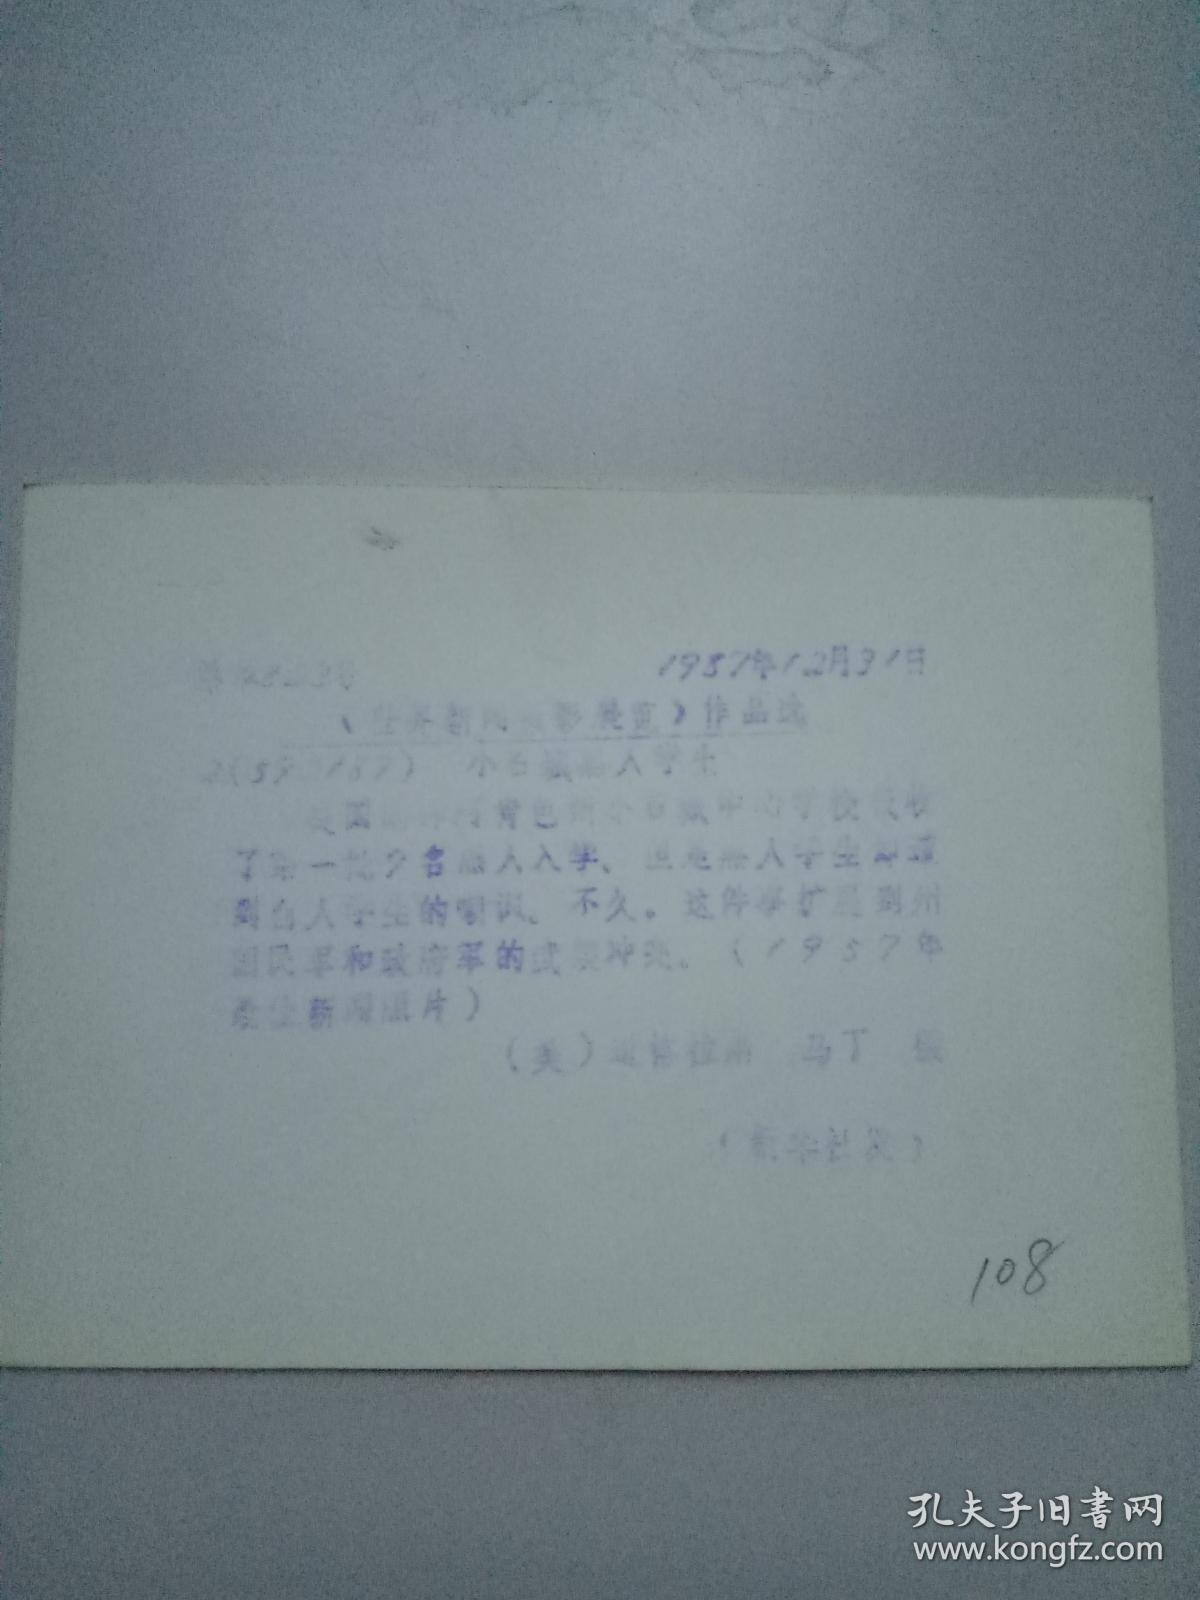 1987年12月31日
《世界新闻摄影展览》作品选
小石城黑人学生
美国阿肯色州小石城中心学校
了第一批9名黑人入学，但是黑人学生
到白人学生的嘲讽。不久。这件事扩展到州
国民军和政府军的武装冲突。(1957年
最佳新闻照片)
(美) 马丁 摄
(新华社发)
108
孔夫子旧书网
www.kongfz.com